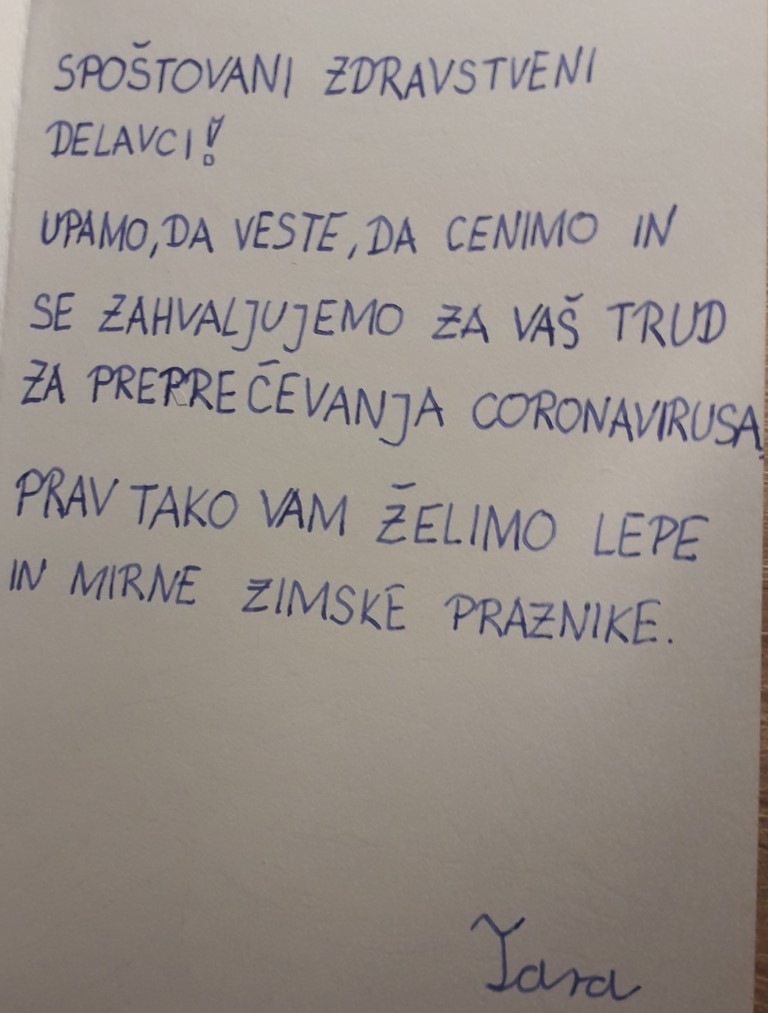 SPOŠTOVANI ZDRAVSTVENI
DELAVCI!
UPAMO, DA VESTE, DA CENIMO IN
SE ZAHVALJUJEMO ZA VAŠ TRUD
ZA PREPREČEVANJA CORONAVIRUSA,
PRAV TAKO VAM ŽELIMO LEPE
IN MIRNE ZIMSKE PRAZNIKE.
Tara